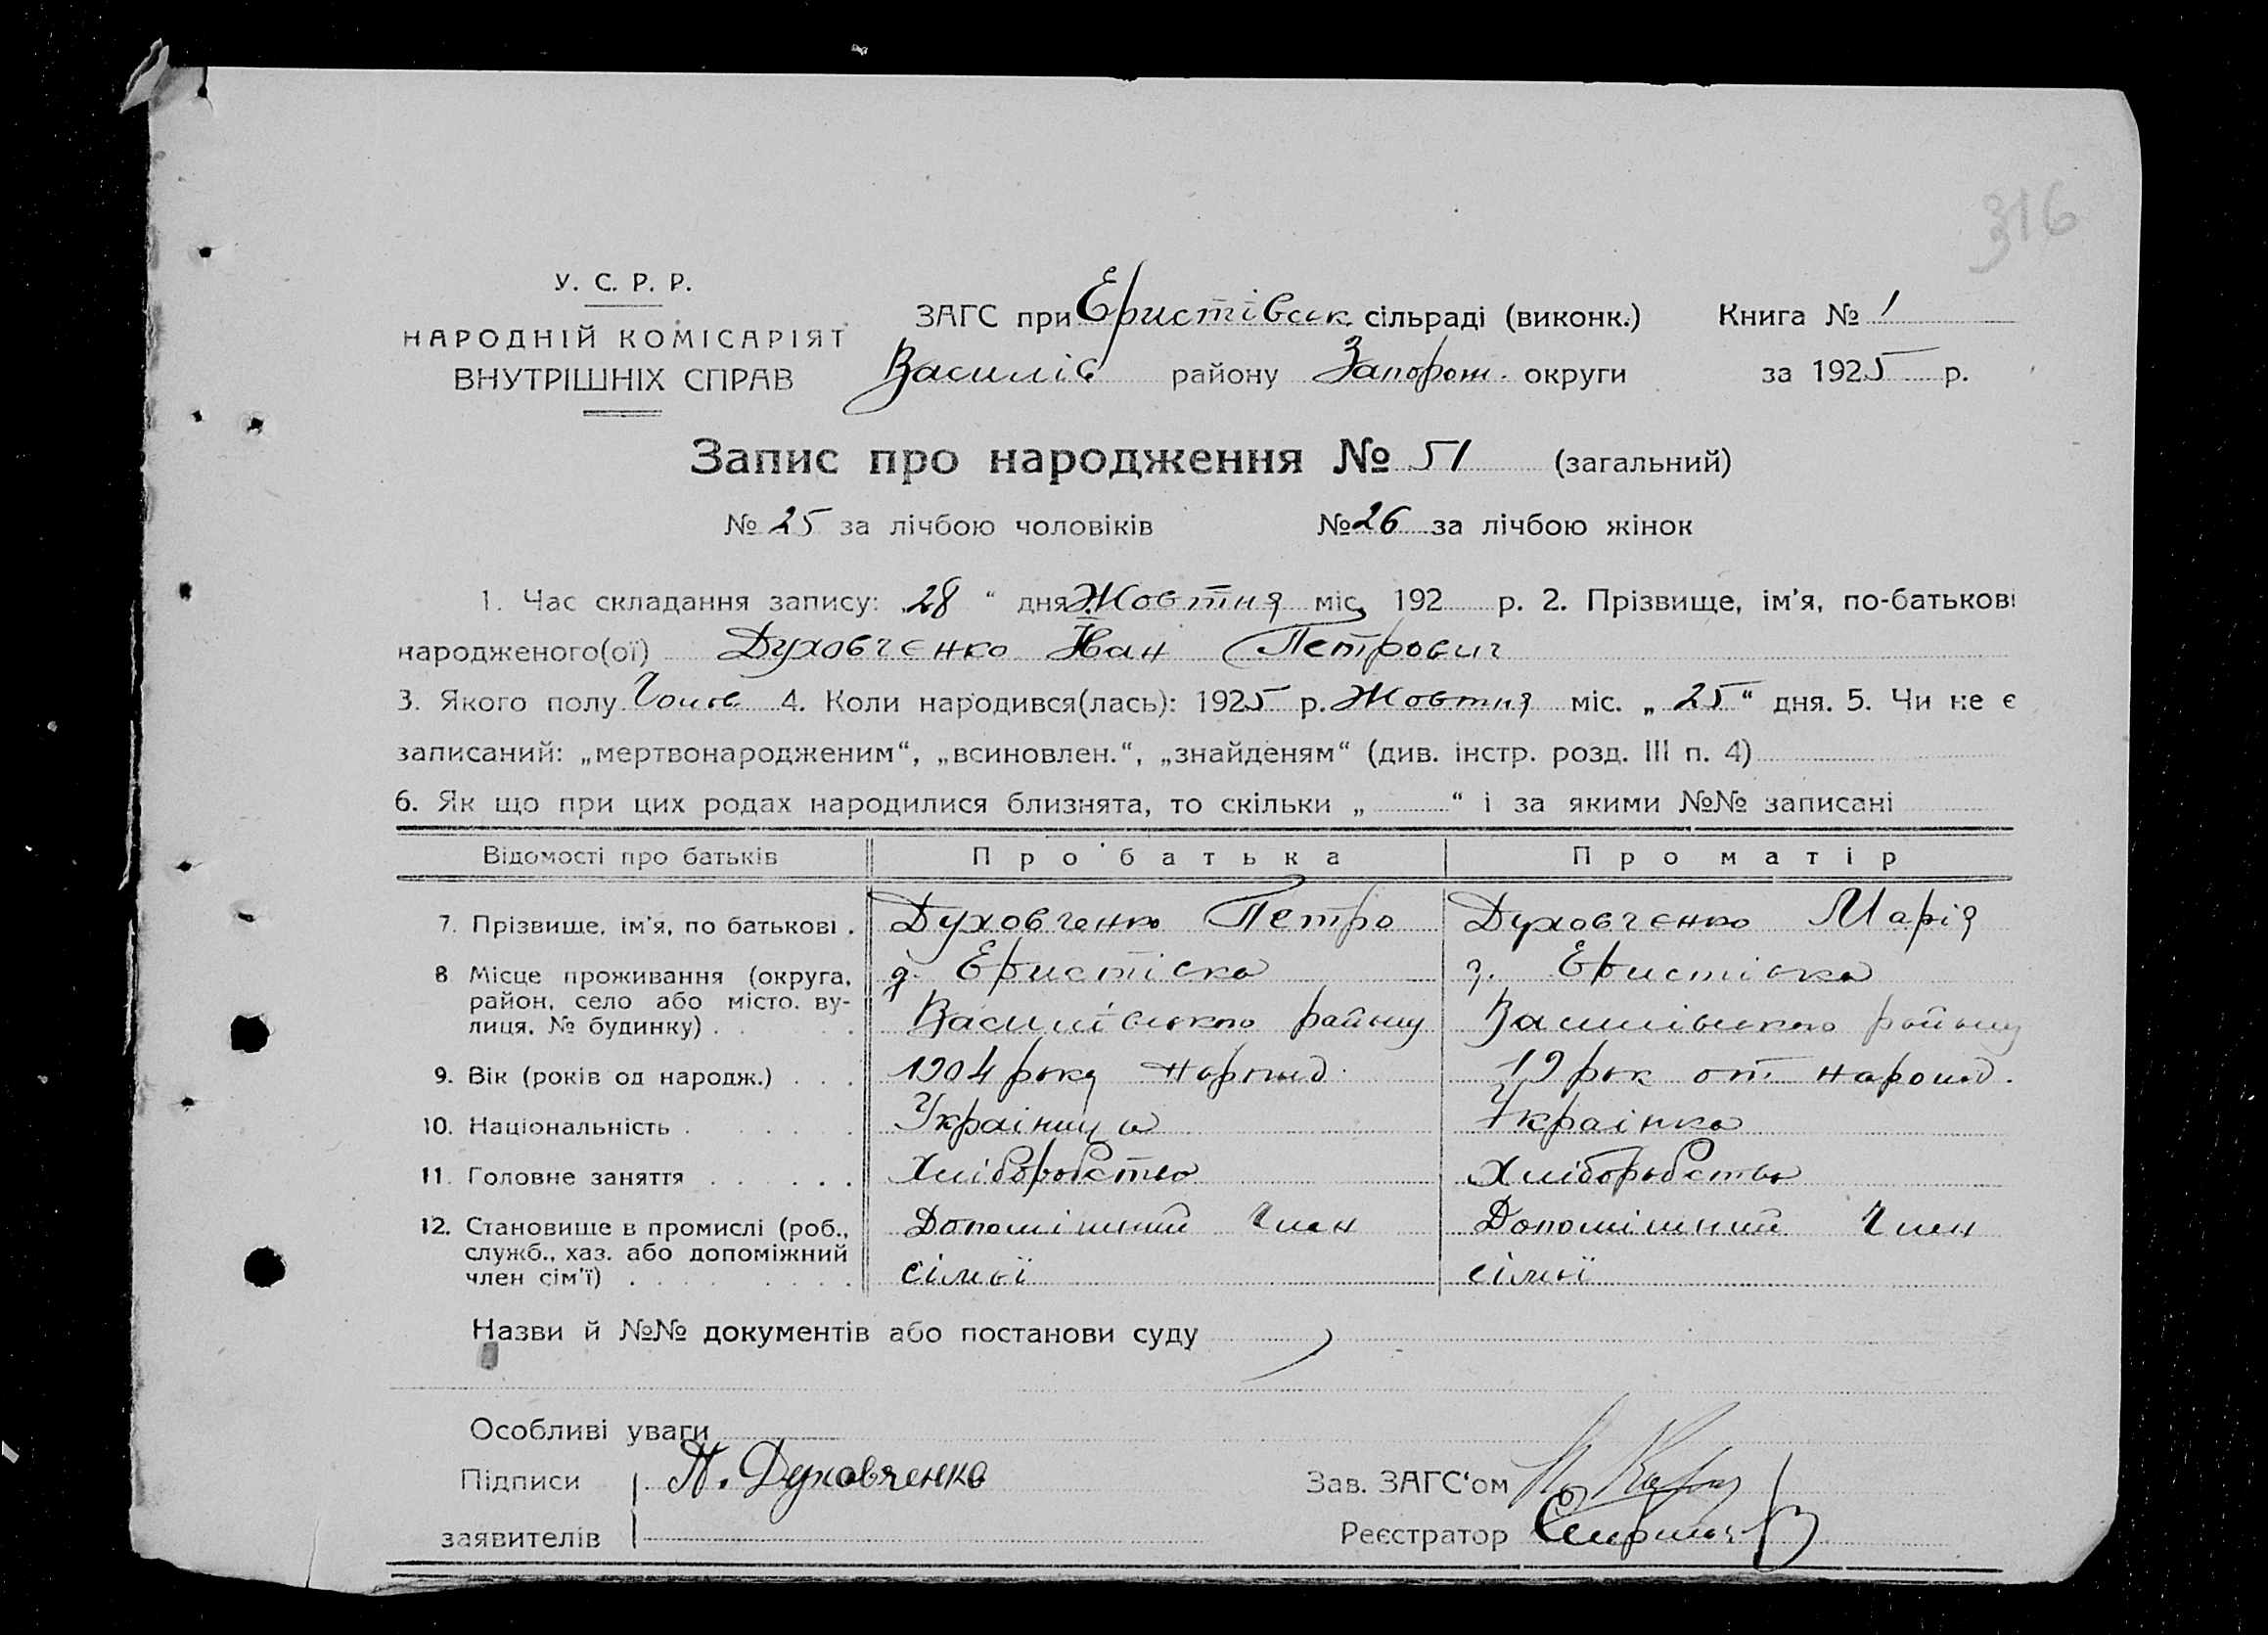 316
У. С. Р. Р.
НАРОДНІЙ КОМІСАРІЯТ
ВНУТРІШНІХ СПРАВ
ЗАГС при Еристівськ. сільраді (виконк.) Книга № 1
Василів району Запорож. округи за 1925 р.
Запис про народження № 51 (загальний)
№ 25 за лічбою чоловіків № 26 за лічбою жінок
1. Час складання запису: 28 “ дня Жовтня міс. 192 р. 2. Прізвище, ім'я, по-батькові
народженого(ої) Духовченко Іван Петрович
3. Якого полу Чолов 4. Коли народився(лась): 1925 р. Жовтня міс. „ 25 “ дня. 5. Чи не є
записаний: „мертвонародженим“, „всиновлен.“, „знайденям“ (див. інстр. розд. III п. 4)
6. Як що при цих родах народилися близнята, то скільки „ “ і за якими №№ записані
Відомості про батьків Про батька Про матір
7. Прізвище, ім'я, по батькові . Духовченко Петро Духовченко Марія
8 Місце проживання (округа, район, село або місто, вулиця, № будинку) . . .
д. Еристівка д. Еристівка
Василівського району Василівського району
9. Вік (років од народж.) . . . 1904 року нарожд. 19 рок от нарожд.
10. Національність . . . . . Українец Українка
11. Головне заняття . . . . . . Хліборобство Хліборобство
12. Становище в промислі (роб., служб., хаз. або допоміжний член сім'ї) . . . . . . .
Допоміжний член Допоміжний член
сімьї сімьї
Назви й №№ документів або постанови суду
Особливі уваги
Підписи П. Духовченко Зав. ЗАГС‘ом
заявителів Реєстратор